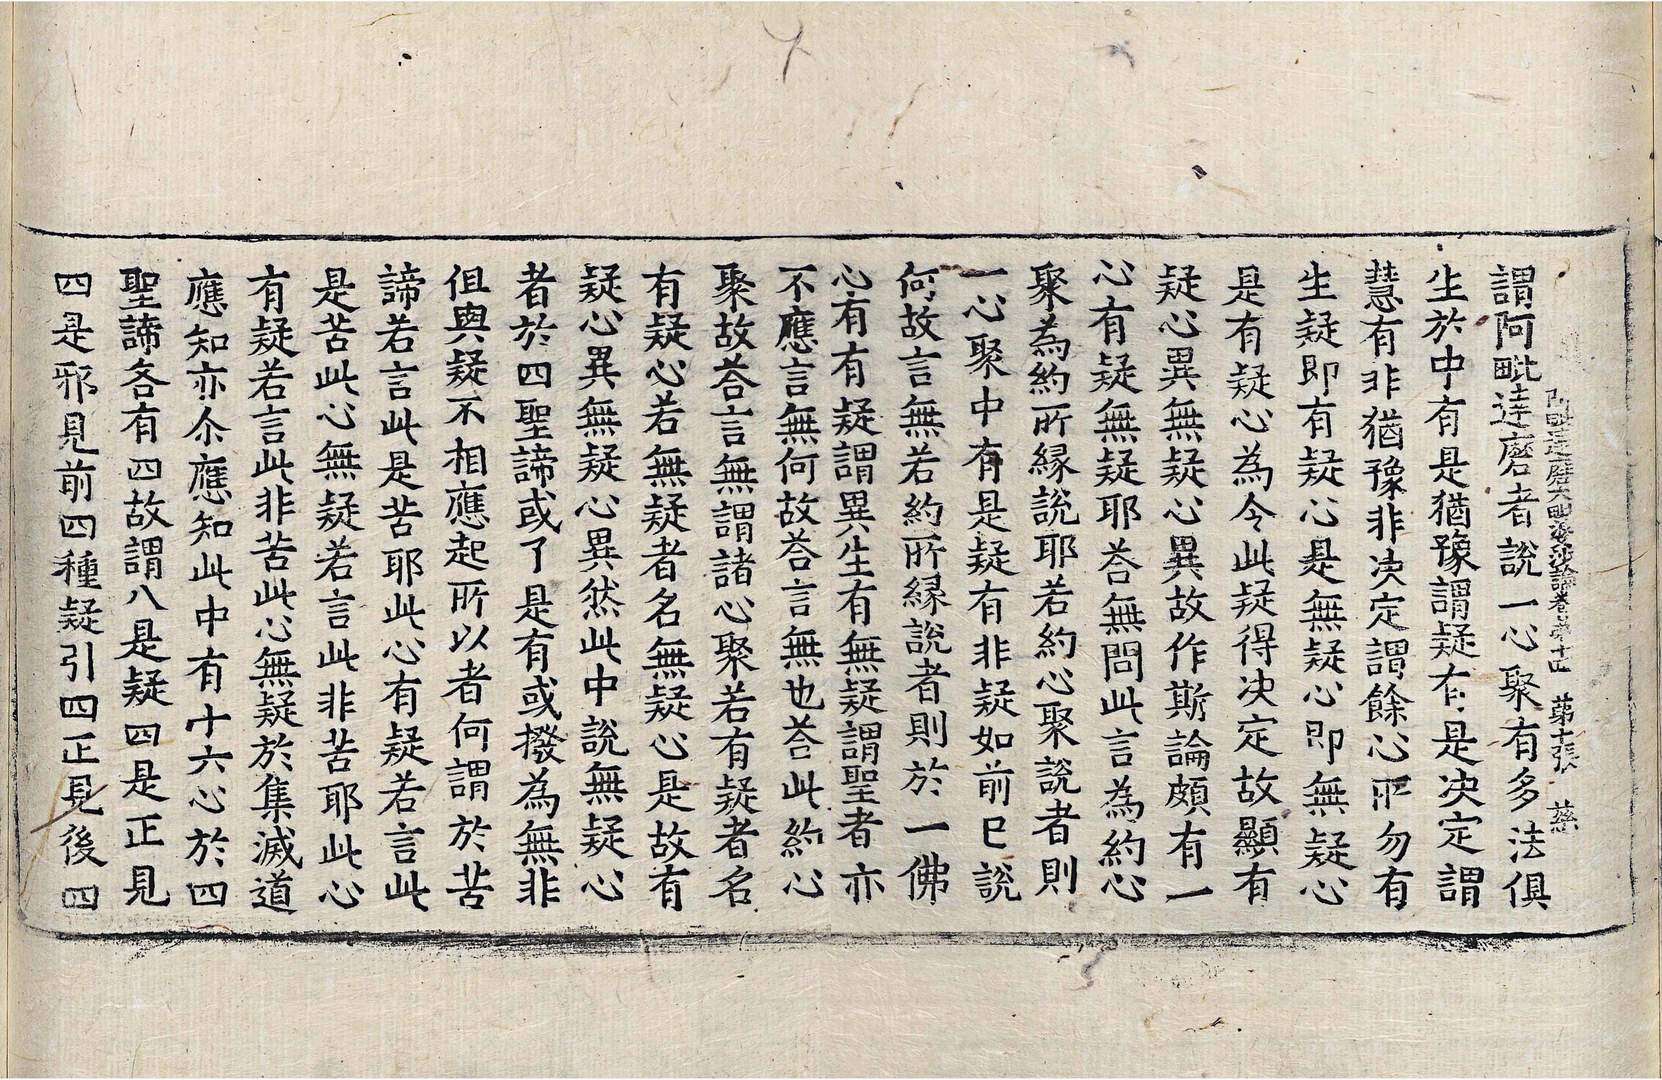 阿毗達磨大毗婆沙論卷第十四　第十張　慈
謂阿毗達磨者說一心聚有多法俱
生於中有是猶豫謂疑有是决定謂
慧有非猶豫非决定謂餘心所勿有
生疑即有疑心是無疑心即無疑心
是有疑心為令此疑得决定故顯有
疑心異無疑心異故作斯論頗有一
心有疑無疑耶荅無問此言為約心
聚為約所緣說耶若約心聚說者則
一心聚中有是疑有非疑如前已說
何故言無若約所緣說者則於一佛
心有有疑謂異生有無疑謂聖者亦
不應言無何故荅言無也荅此約心
聚故荅言無謂諸心聚若有疑者名
有疑心若無疑者名無疑心是故有
疑心異無疑心異然此中說無疑心
者於四聖諦或了是有或撥為無非
但與疑不相應起所以者何謂於苦
諦若言此是苦耶此心有疑若言此
是苦此心無疑若言此非苦耶此心
有疑若言此非苦此心無疑於集滅道
應知亦尒應知此中有十六心於四
聖諦各有四故謂八是疑四是正見
四是邪見前四種疑引四正見後四